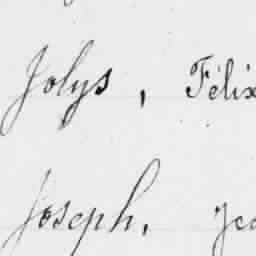 Jolys, Félix
Joseph,